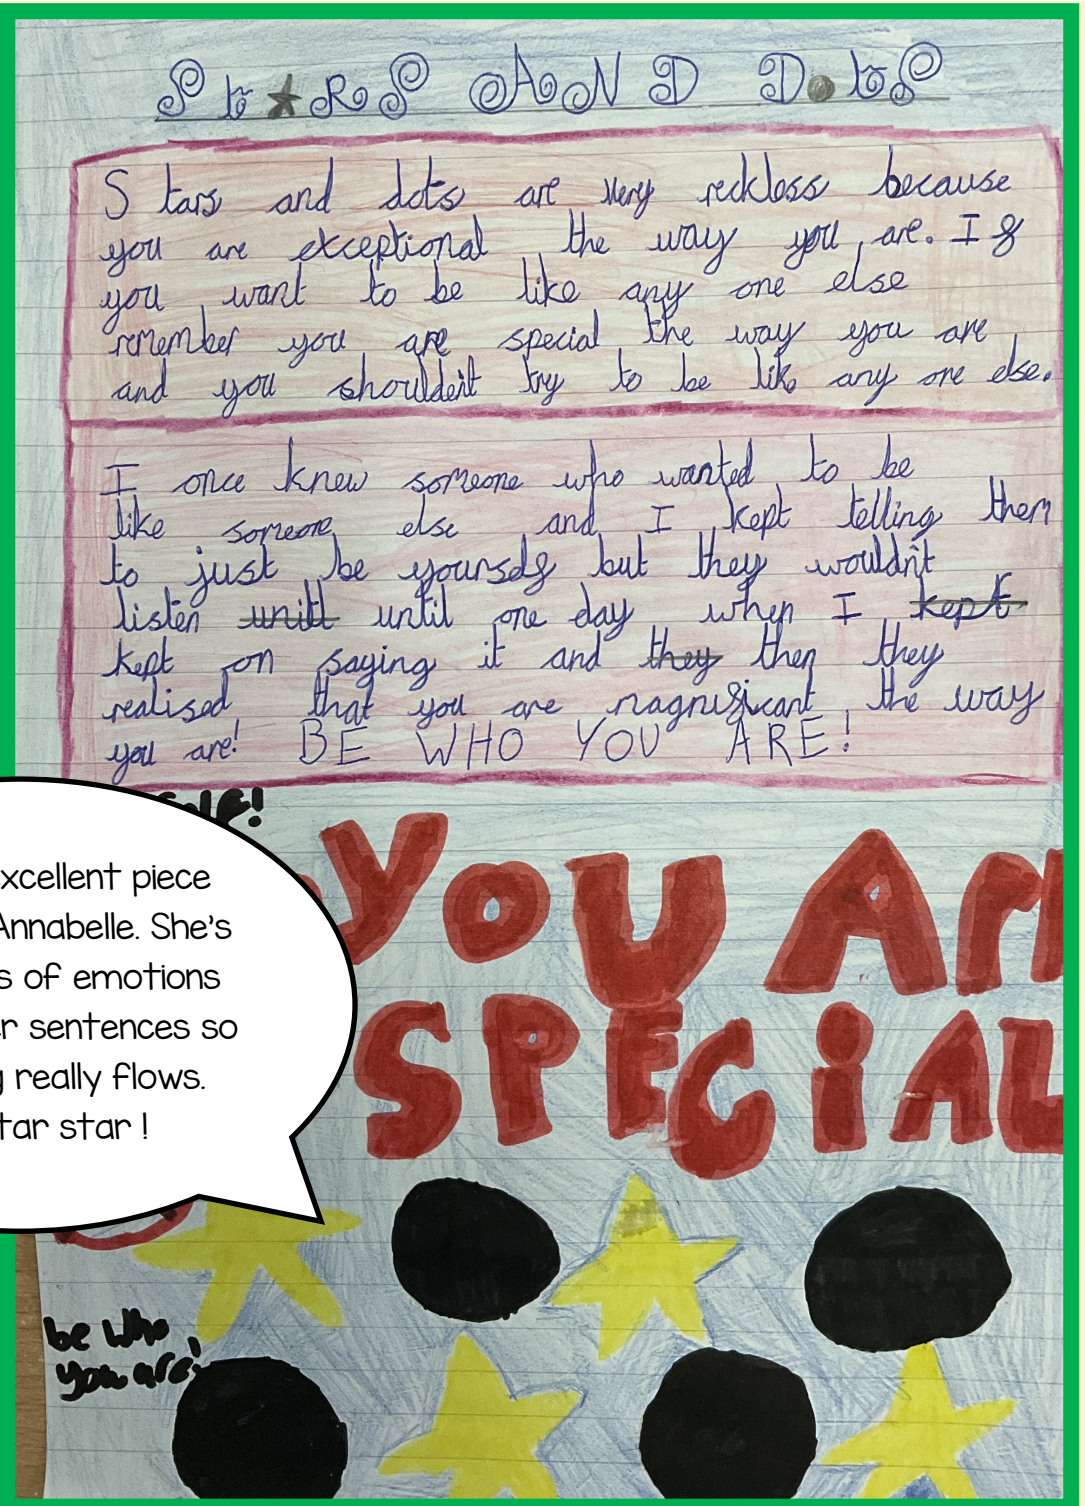 StARS AND DotS
Stars and dots are very reckless because
you are exceptional the way you are. If
you want to be like any one else
remember you are special the way you are
and you shouldent try to be like any one else.
I once knew someone who wanted to be
like someone else and I kept telling them
to just be yourself but they wouldn't
listen until one day when I kept
kept on saying it and they then they
realised that you are magnificant the way
you are! BE WHO YOU ARE!
xcellent piece
Annabelle. She's
s of emotions
er sentences so
g really flows.
tar star !
YOU Ar
SPECiAL
be who
you are!